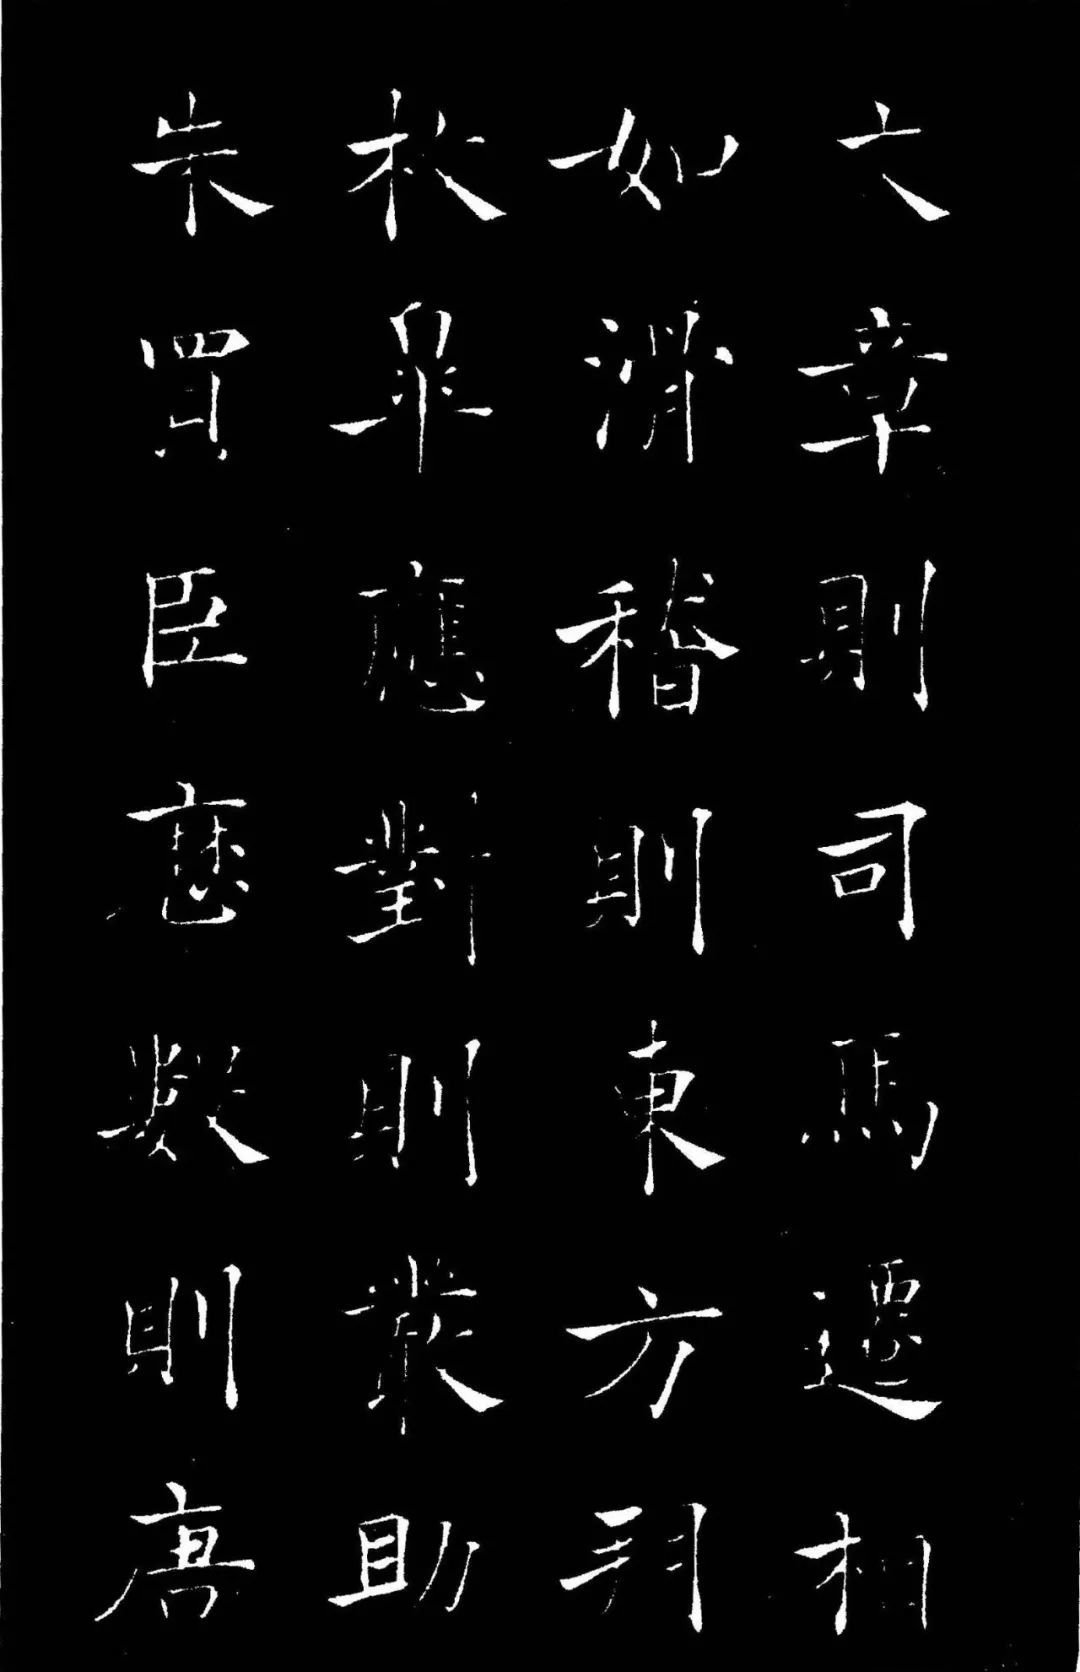 六章則司馬遷相
如滑稽則東方朔
枚皋應對則嚴助
朱買臣曆數則唐